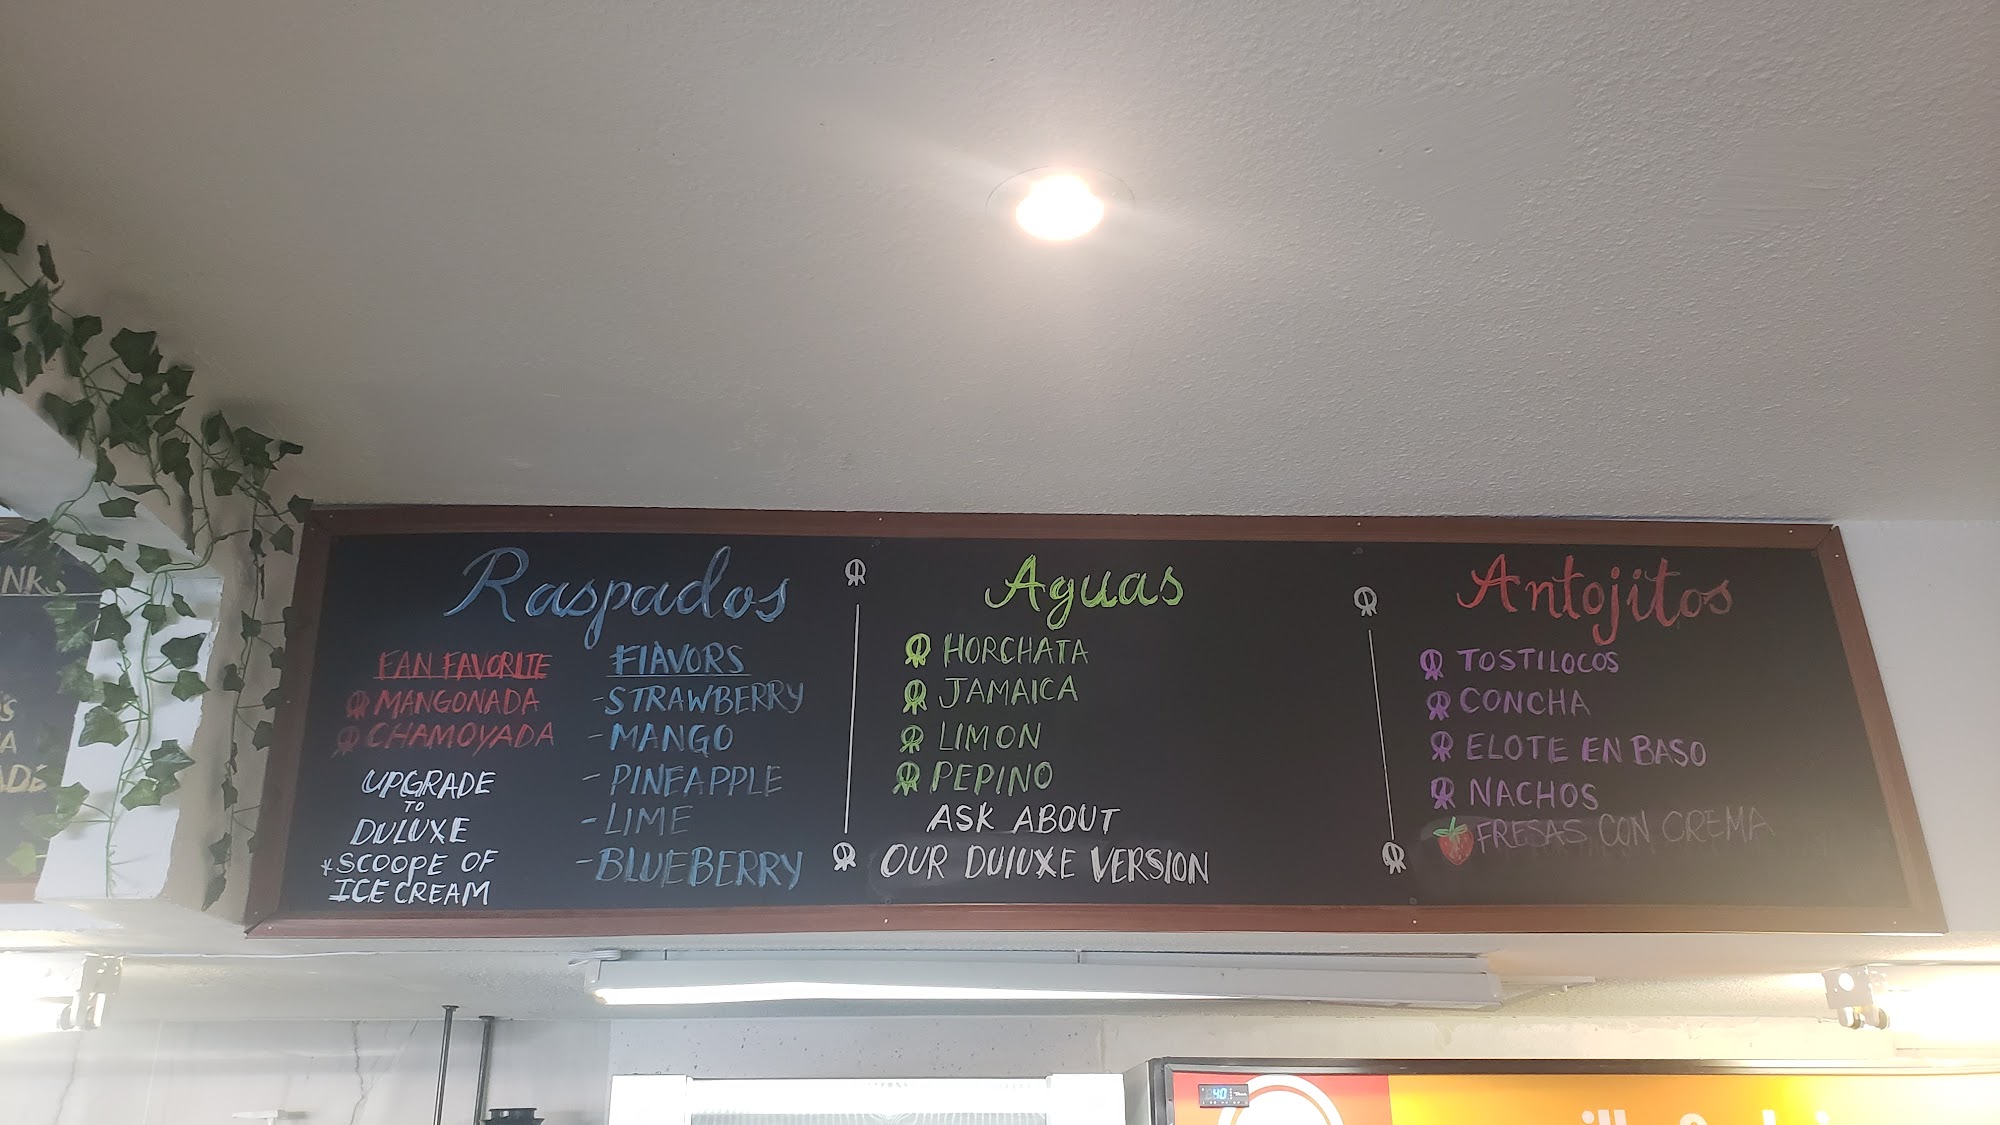 Raspados
FAN FAVORITE
MANGONADA
CHAMOYADA
UPGRADE
TO
DULUXE
*SCOOPE OF
ICE CREAM
FLAVORS
-STRAWBERRY
-MANGO
-PINEAPPLE
-LIME
-BLUEBERRY
Aguas
HORCHATA
JAMAICA
LIMON
PEPINO
ASK ABOUT
OUR DULUXE VERSION
Antojitos
TOSTILOCOS
CONCHA
ELOTE EN BASO
NACHOS
FRESAS CON CREMA
40